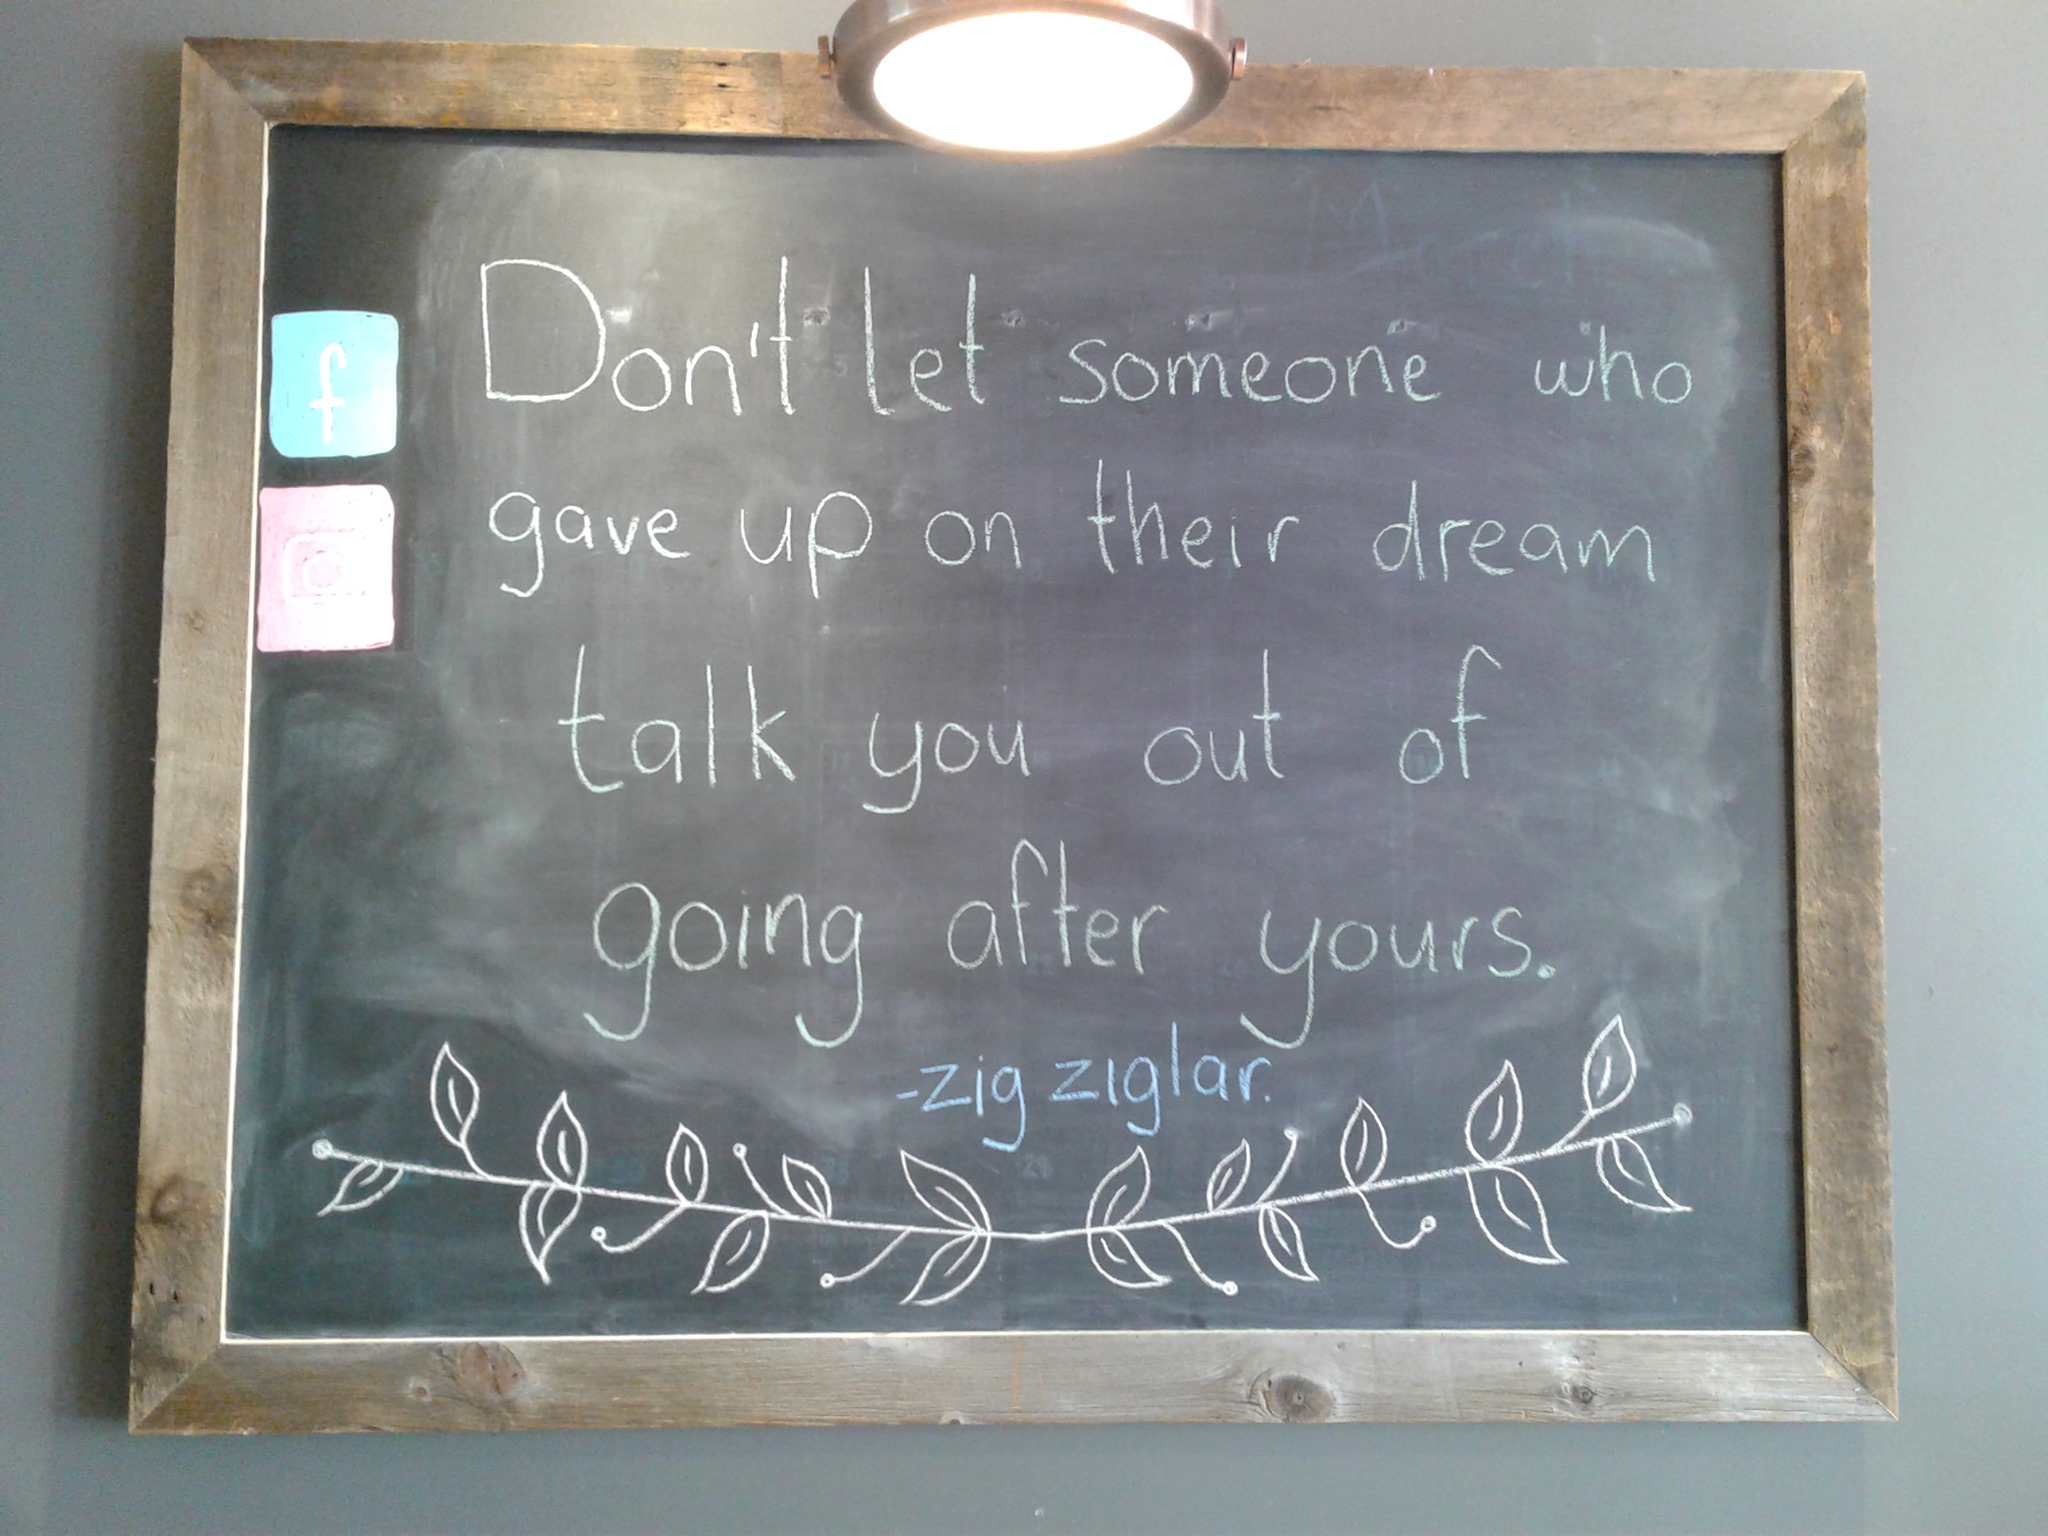 Don't let someone who
gave up on their dream
talk you out of
going after yours.
-zig ziglar.
f